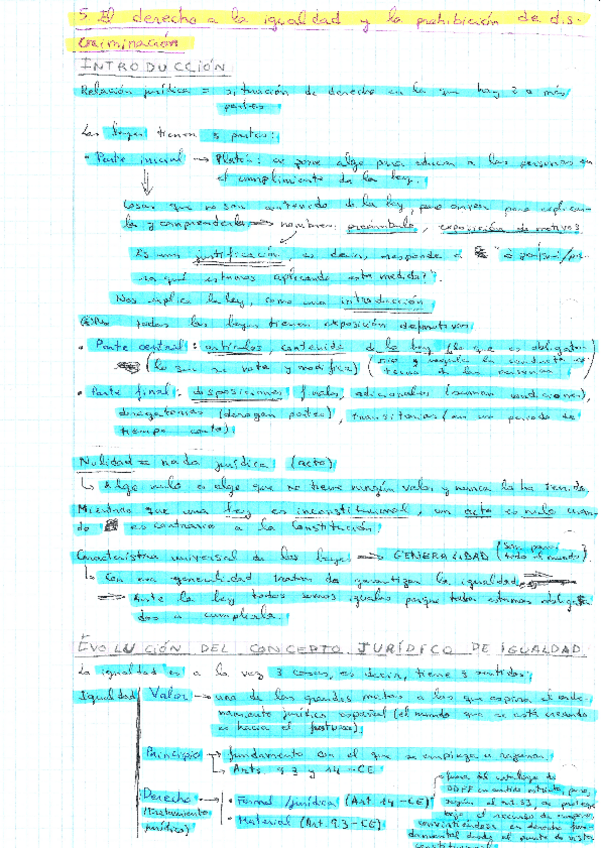 5. El derecho a la igualdad y la prohibición de dis-
criminación
INTRODUCCIÓN
Relación jurídica = situación de derecho en la que hay 2 o más
partes
Las leyes tienen 3 partes:
• Parte inicial → Platón: se pone algo para educar a las personas en
el cumplimiento de la ley.
Cosas que no son contenido de la ley, pero sirven para explicar-
la y comprenderla → nombres: preámbulo, exposición de motivos
Es una justificación, es decir, responde a "¿ por qué/pa-
ra qué estamos aplicando esta medida?".
Nos explica la ley, como una introducción
No todas las leyes tienen exposición de motivos
• Parte central: artículos, contenido de la ley (lo que es obligato-
(lo que se vota y modifica) rio y regula la conducta
de las personas
• Parte final: disposiciones finales, adicionales condiciones),
derogatorias (derogan partes), transitorias (en un periodo de
tiempo corto)
Nulidad = nada jurídica (acto)
↳ Algo nulo es algo que no tiene ningún valor y nunca lo ha tenido.
Mientras que una ley es inconstitucional, un acto es nulo cuan-
do es contrario a la Constitución.
Característica universal de las leyes → GENERALIDAD (Son para
todo el mundo).
↳ Con esa generalidad tratan de garantizar la igualdad
→ Ante la ley todos somos iguales porque todos estamos obliga-
dos a cumplirla.
EVOLUCIÓN DEL CONCEPTO JURÍDICO DE IGUALDAD
La igualdad es a la vez 3 cosas, es decir, tiene 3 sentidos:
Igualdad Valor → una de las grandes metas a las que aspira el orde-
namiento jurídico español (el mundo que se está creando
es hacia el futuro)
Principio → fundamento con el que se empieza a razonar
↳ Arts 9.3 y 14 - CE
Derecho → • Formal / jurídica (Art. 14 - CE)
(Instrumento • Material (Art. 9.3 - CE)
jurídico)
fuera del catálogo de
DDFF en sentido estricto, pero
según el art. 53 se protege
bajo el recurso de amparo
convirtiéndose en derecho funda-
mental desde el punto de vista
constitucional